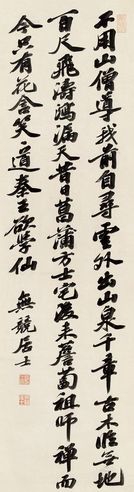 不用山僧導我前自尋雲外出山泉千章古木臨無地
百尺飛濤瀉漏天昔日菖蒲方士宅後来薝蔔祖師禪而
今只有花含笑々道秦王欲學仙 無競居士